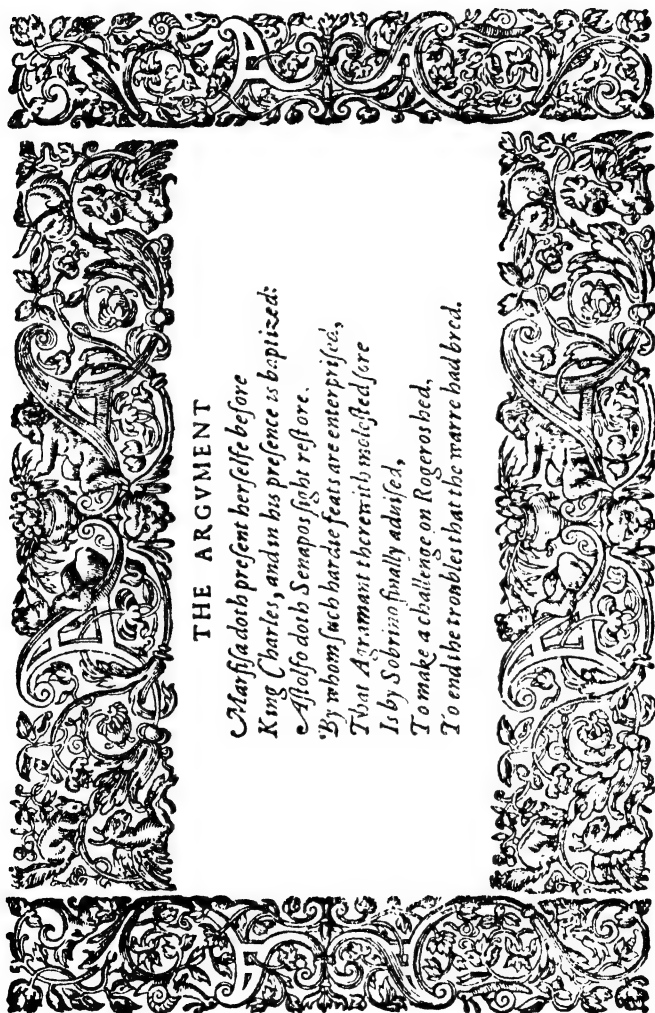 THE ARGVMENT
Marfisa doth present herselfe before
King Charles, and in his presence is baptized:
Astolfo doth Senapos sight restore.
By whom such hardie feats are enterprised,
That Agramant therewith molested sore
Is by Sobrino finally aduised,
To make a challenge on Rogeros hed,
To end the troubles that the warre had bred.